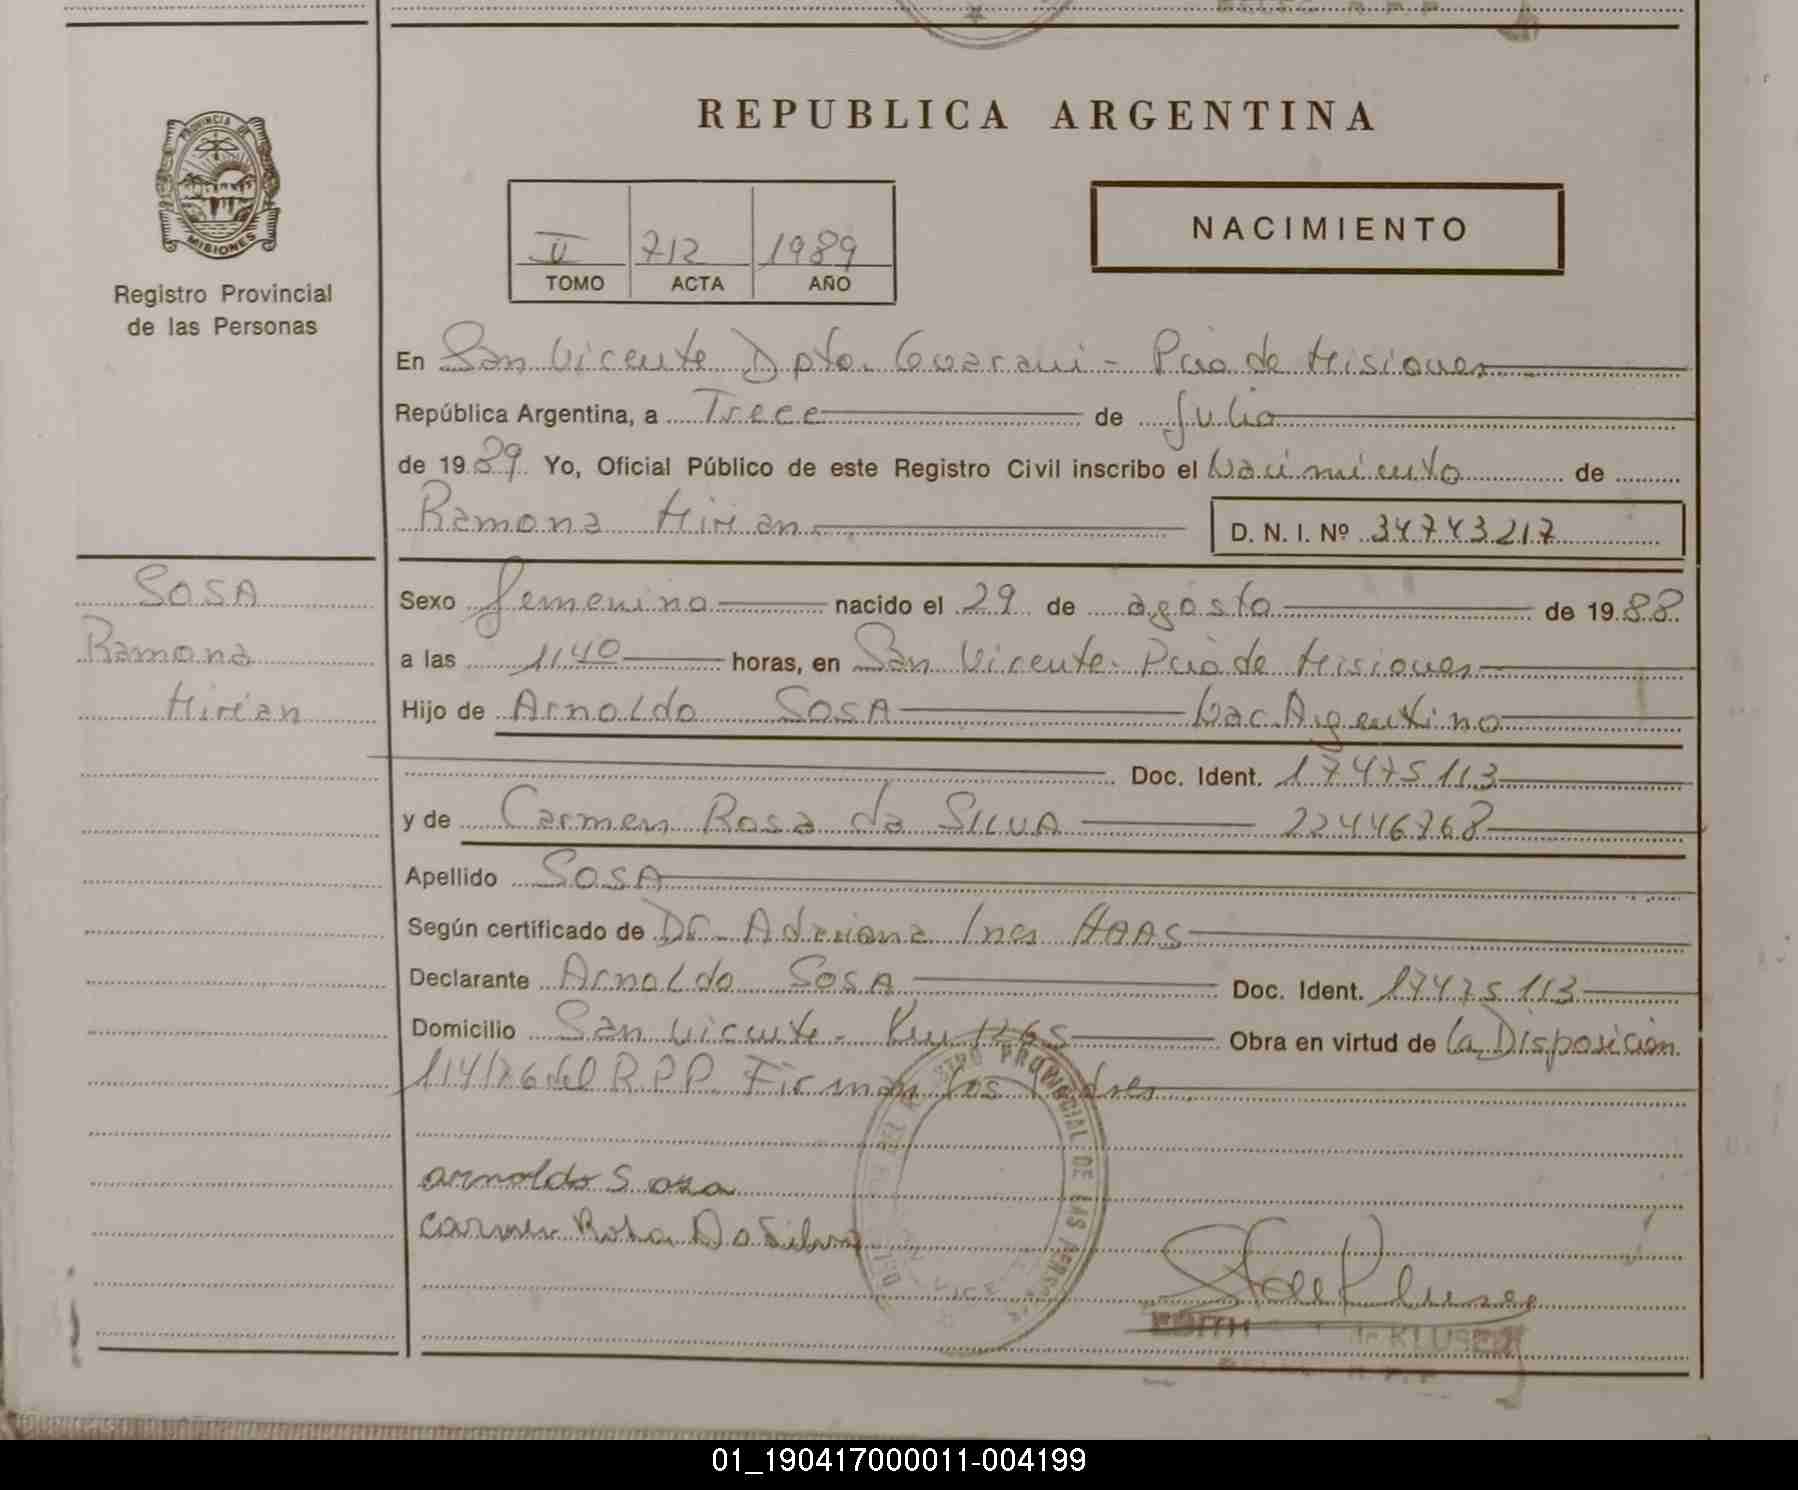 REPUBLICA ARGENTINA
PROVINCIA DE
MISIONES
Registro Provincial
de las Personas
II 712 1989
TOMO ACTA AÑO
NACIMIENTO
En San Vicente Dpto. Guaraní - Pcia de Misiones
República Argentina, a Trece de Julio
de 1989 Yo, Oficial Público de este Registro Civil inscribo el Nacimiento de
Ramona Mirian
D. N. I. Nº 34743217
SOSA
Ramona
Mirian
Sexo femenino nacido el 29 de agosto de 1988
a las 1140 horas, en San Vicente. Pcia de Misiones
Hijo de Arnoldo SOSA Nac. Argentino
Doc. Ident. 17475113
y de Carmen Rosa da SILVA 22446768
Apellido SOSA
Según certificado de Dr. Adriana Ines HAAS
Declarante Arnoldo SOSA Doc. Ident. 17475113
Domicilio San Vicente - Km 1265 Obra en virtud de la Disposición
114/76 del R.P.P. Firman los Padres
arnoldo Sosa
Carmen Rosa Da Silva
REGISTRO PROVINCIAL DE LAS PERSONAS
EDITH de KLUSENER
R. P. P.
01_190417000011-004199